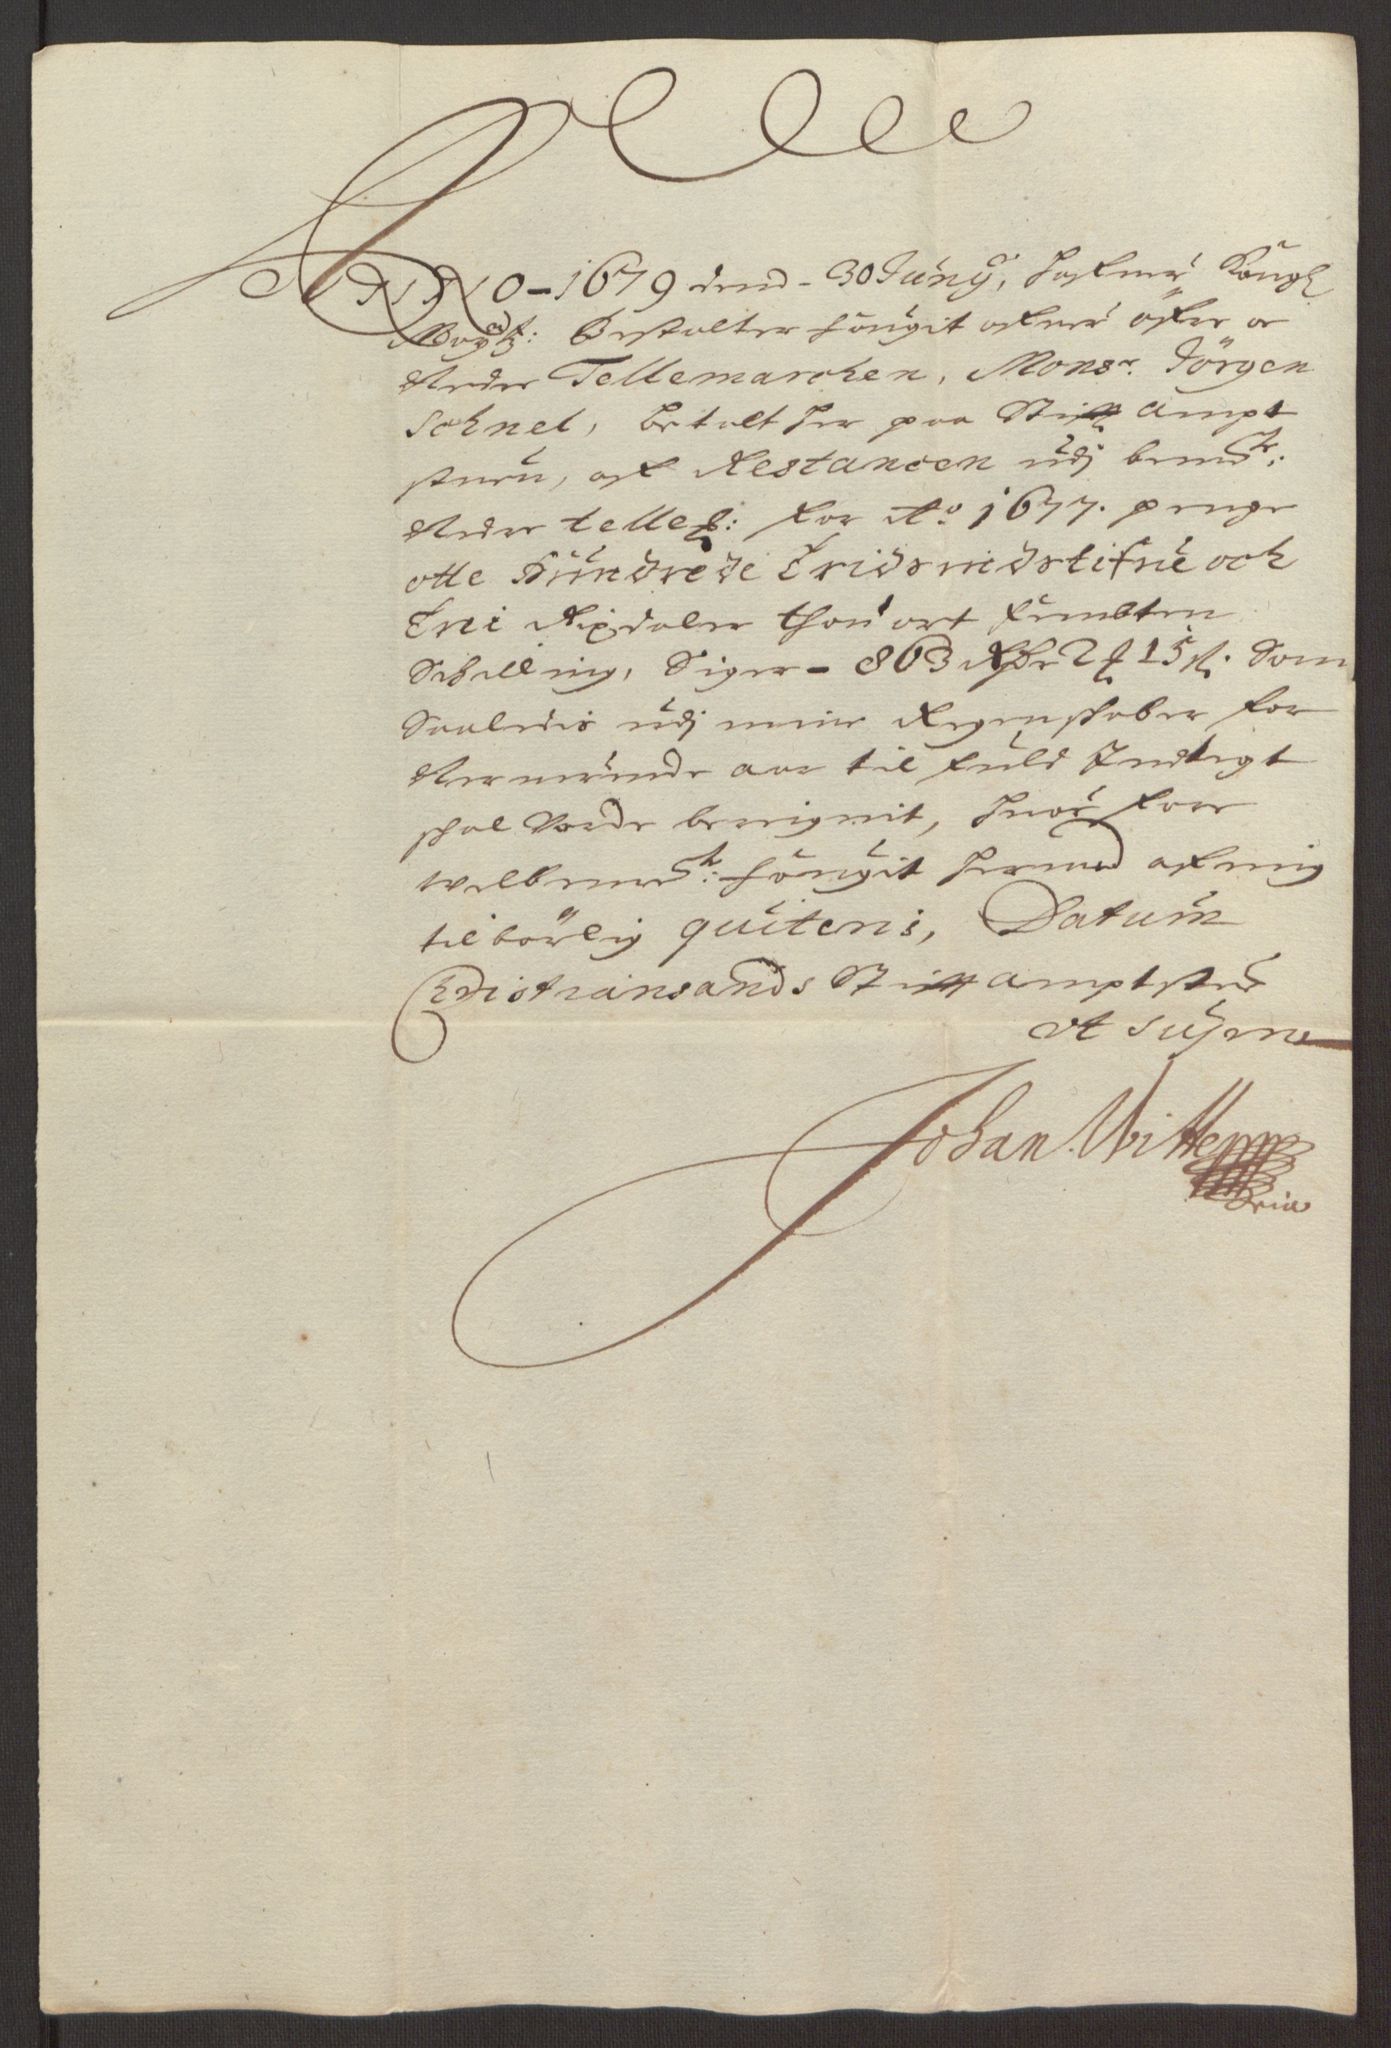 ANNO - 1679 dend - 30 Junÿ, hafuer Kongl
Maÿtz: Bestalter fougit ofuer öfre
Nedre Tellemarchen, Monsr. Jörgen
Schnel, betalt her paa Stifft ampt
stuen, aff Restancen udj bemte:
Nedre Tellem: for Ao 1677. penge
otte Hundrede Tridsindstifue och
Trei Rixdaler thou ort fembten
Schilling, Siger - 863 Rdr 2 ort 15 s. Som
Saaledis udj mine Regenschaber for
bemte aar til fuld Indtegt
schal vorde bereignit, huor fore
welbemte: fougit hermed af mig
tilbörlig quiteris, Datum
Christiansands Stifft amptstue
Ut supra
Johan Witte